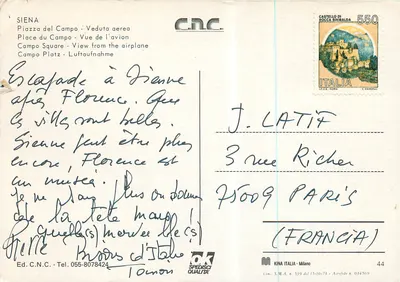 SIENA
Piazza del Campo - Veduta aerea
Place du Campo - Vue de l'avion
Campo Square - View from the airplane
Campo Platz - Luftaufnahme
C.N.C.
CASTELLO DI ROCCA SINIBALDA
550
ITALIA
Escapade à Sienne
après Florence. Que
ces villes sont belles.
Sienne peut être plus
encore, Florence est
un musée.
Je ne sais plus où donner
de la tête mais
quelle(s) merveille(s)
Bisous d'Italie
J. LATIF
3 rue Richer
75009 PARIS
(FRANCIA)
Ed. C.N.C. - Tel. 055-8078424
KINA ITALIA - Milano
44